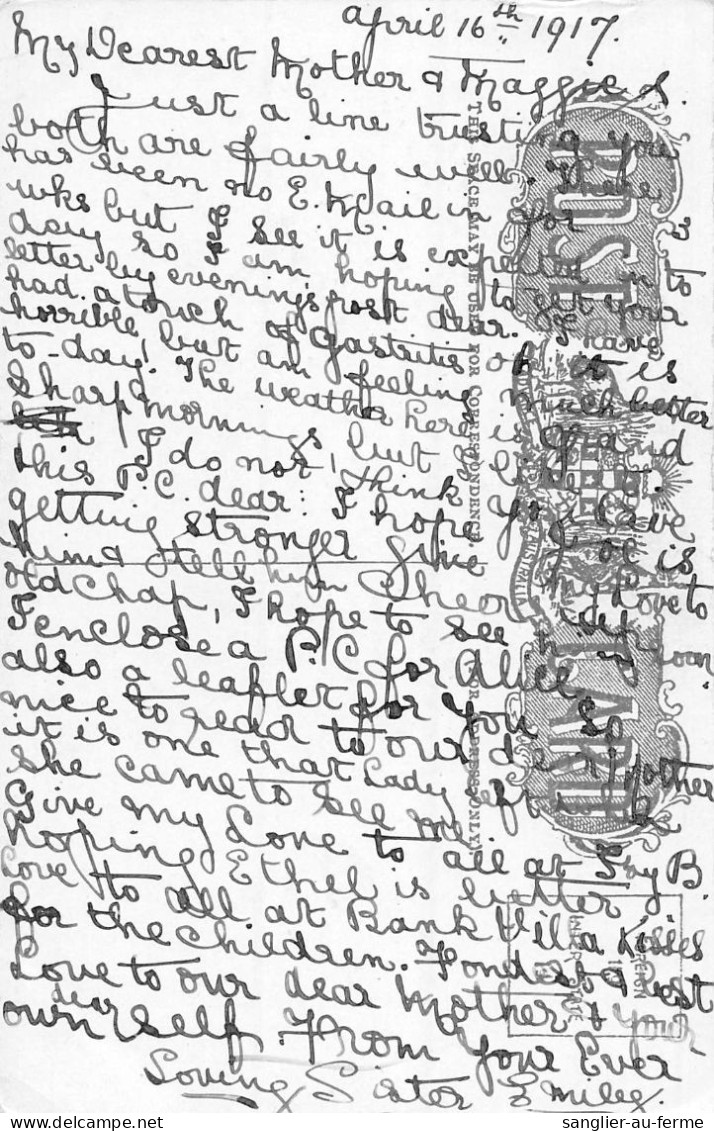 April 16th 1917.
My Dearest Mother & Maggie S.
Just a line trusting you
both are fairly well. There
has been no E. Mail in for 3
wks but I see it is expected in to
day so I am hoping to get your
letter by evenings post dear. I have
had a touch of Gastritis oh it is
horrible, but am feeling much better
to-day! The weather here is grand
Sharp mornings, but
I do not think I
this P.C. dear. I hope
getting stronger Give my Love to
him & tell him
old chap, I hope to see him
I enclose a P/C for Alice,
also a leaflet for you, so
nice to read to our dear Mother
it is one that Lady left
She came to see me
Give my Love to all at B.
hoping Ethel is better
Love to all at Bank Villa Kisses
for the children. Fondest & best
Love to our dear Mother & your
own dear Self From Your Ever
Loving Sister Emiley
POST CARD
THIS SPACE MAY BE USED FOR CORRESPONDENCE.
sanglier-au-ferme